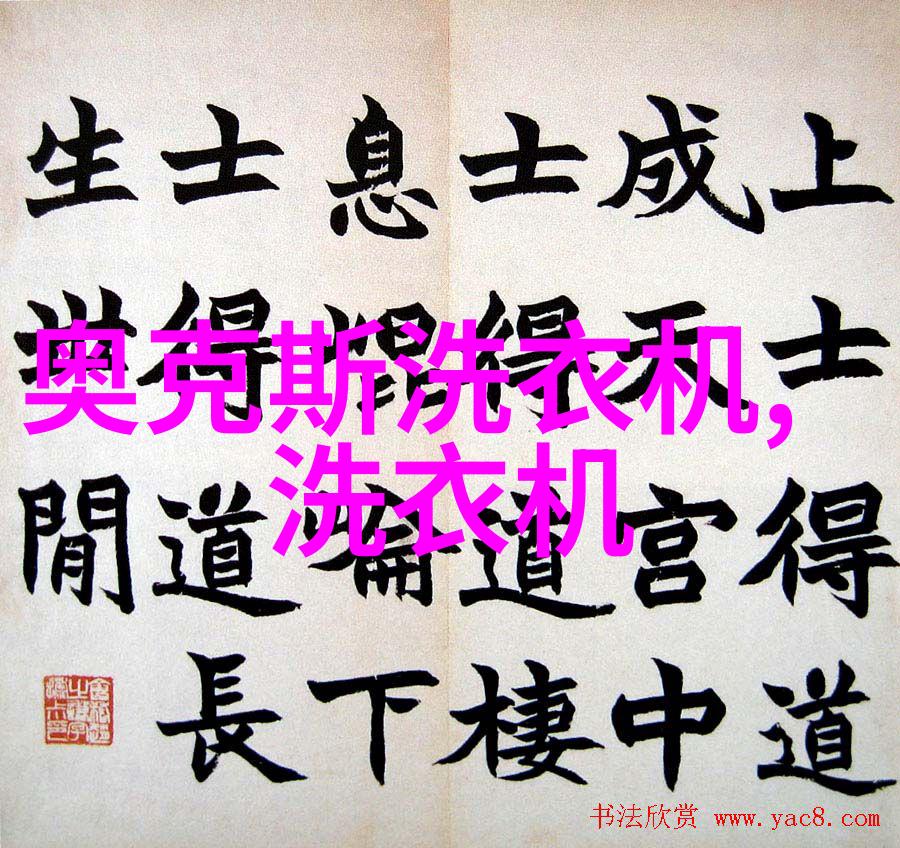 上士得道
成天宫中
士得道棲
息下
士得道長
生世閒
奥克斯洗衣机,
洗衣机
书法欣赏 www.yac8.com